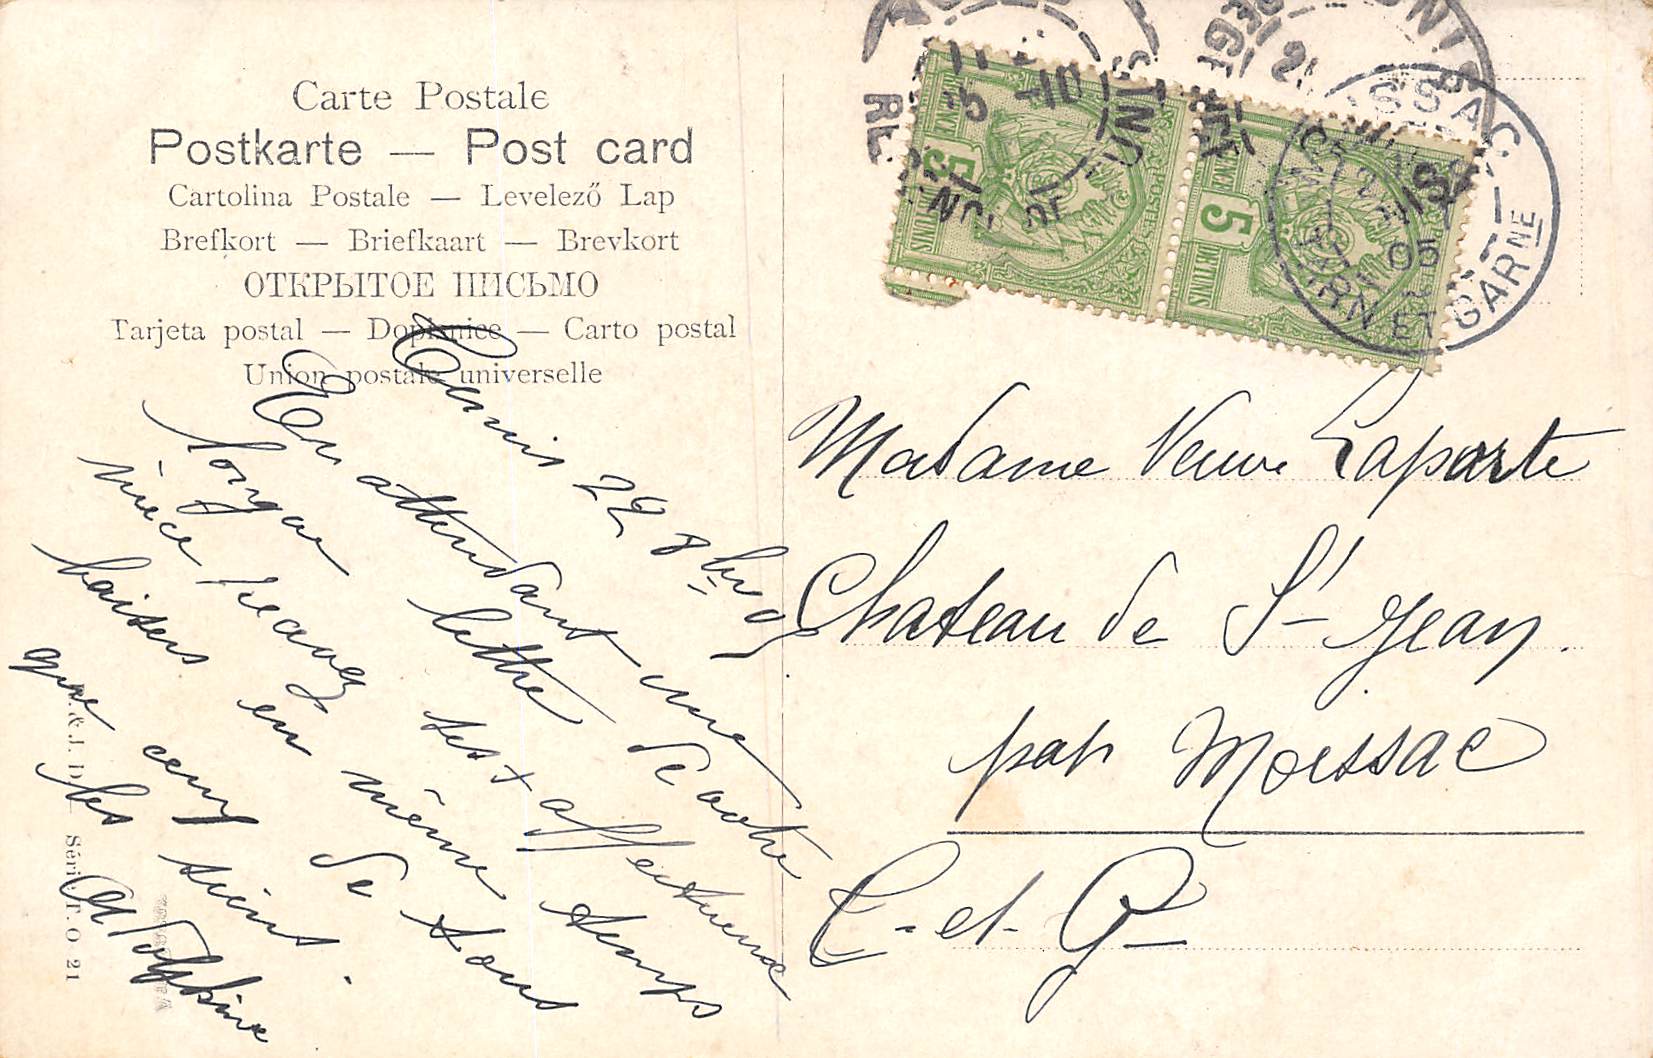 Carte Postale
Postkarte — Post card
Cartolina Postale — Levelező Lap
Brefkort — Briefkaart — Brevkort
ОТКРЫТОЕ ПИСЬМО
Tarjeta postal — Dopisnice — Carto postal
Union postale universelle
Tunis 22 8bre 05
En attendant une
longue lettre de votre
nièce recevez ses + affectueux
baisers en même temps
que ceux de tous
les siens.
Adolphine
Série T. O. 21
5
5
MOISSAC
05
TARN ET GARNE
Madame Veuve Laporte
Chateau de St Jean.
par Moissac
T. et. G.